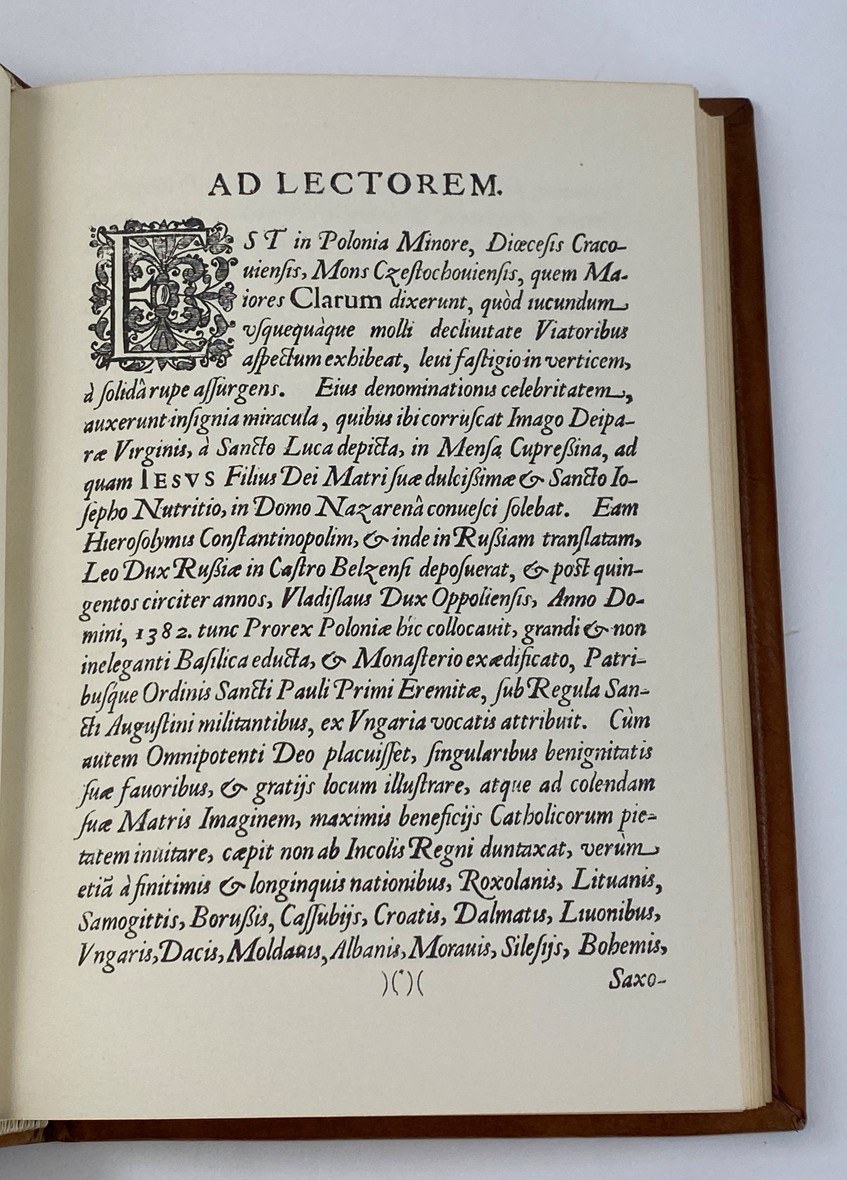 AD LECTOREM.
EST in Polonia Minore, Diœcesis Craco-
uiensis, Mons Czestochouiensis, quem Ma-
iores Clarum dixerunt, quòd iucundum
vsquequàque molli decliuitate Viatoribus
aspectum exhibeat, leui fastigio in verticem,
à solidâ rupe assurgens. Eius denominationis celebritatem,
auxerunt insignia miracula, quibus ibi corruscat Imago Deipa-
ræ Virginis, à Sancto Luca depicta, in Mensa Cupressina, ad
quam IESVS Filius Dei Matri suæ dulcissimæ & Sancto Io-
sepho Nutritio, in Domo Nazarenâ conuesci solebat. Eam
Hierosolymis Constantinopolim, & inde in Russiam translatam,
Leo Dux Russiæ in Castro Belzensi deposuerat, & post quin-
gentos circiter annos, Vladislaus Dux Oppoliensis, Anno Do-
mini, 1382. tunc Prorex Poloniæ hîc collocauit, grandi & non
ineleganti Basilica educta, & Monasterio exædificato, Patri-
busque Ordinis Sancti Pauli Primi Eremitæ, sub Regula San-
cti Augustini militantibus, ex Vngaria vocatis attribuit. Cùm
autem Omnipotenti Deo placuisset, singularibus benignitatis
suæ fauoribus, & gratijs locum illustrare, atque ad colendam
suæ Matris Imaginem, maximis beneficijs Catholicorum pie-
tatem inuitare, cæpit non ab Incolis Regni duntaxat, verùm
etiã à finitimis & longinquis nationibus, Roxolanis, Lituanis,
Samogittis, Borussis, Cassubijs, Croatis, Dalmatis, Liuonibus,
Vngaris, Dacis, Moldauis, Albanis, Morauis, Silesijs, Bohemis,
)(*)( Saxo-